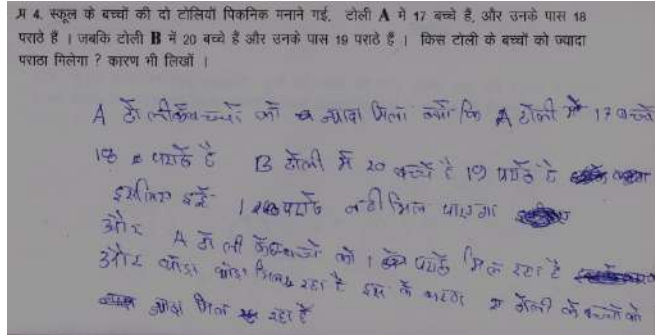 प्र 4. स्कूल के बच्चों की दो टोलियाँ पिकनिक मनाने गई. टोली A मे 17 बच्चे हैं, और उनके पास 18
पराठे हैं । जबकि टोली B में 20 बच्चे हैं और उनके पास 19 पराठे हैं । किस टोली के बच्चों को ज्यादा
पराठा मिलेगा ? कारण भी लिखों ।
A टोली के बच्चों को ज्यादा मिला क्यों कि A टोली मे 17 बच्चे
18 पराठे है B टोली में 20 बच्चे है 19 पराठे है
इसलिए इन्हें 1 पराठे नही मिल पाएगा
और A टोली के बच्चो को 1 पराठे मिल रहा है
और थोडा थोडा मिल रहा है इस के कारण टोली के बच्चों को
ज्यादा मिल रहा है